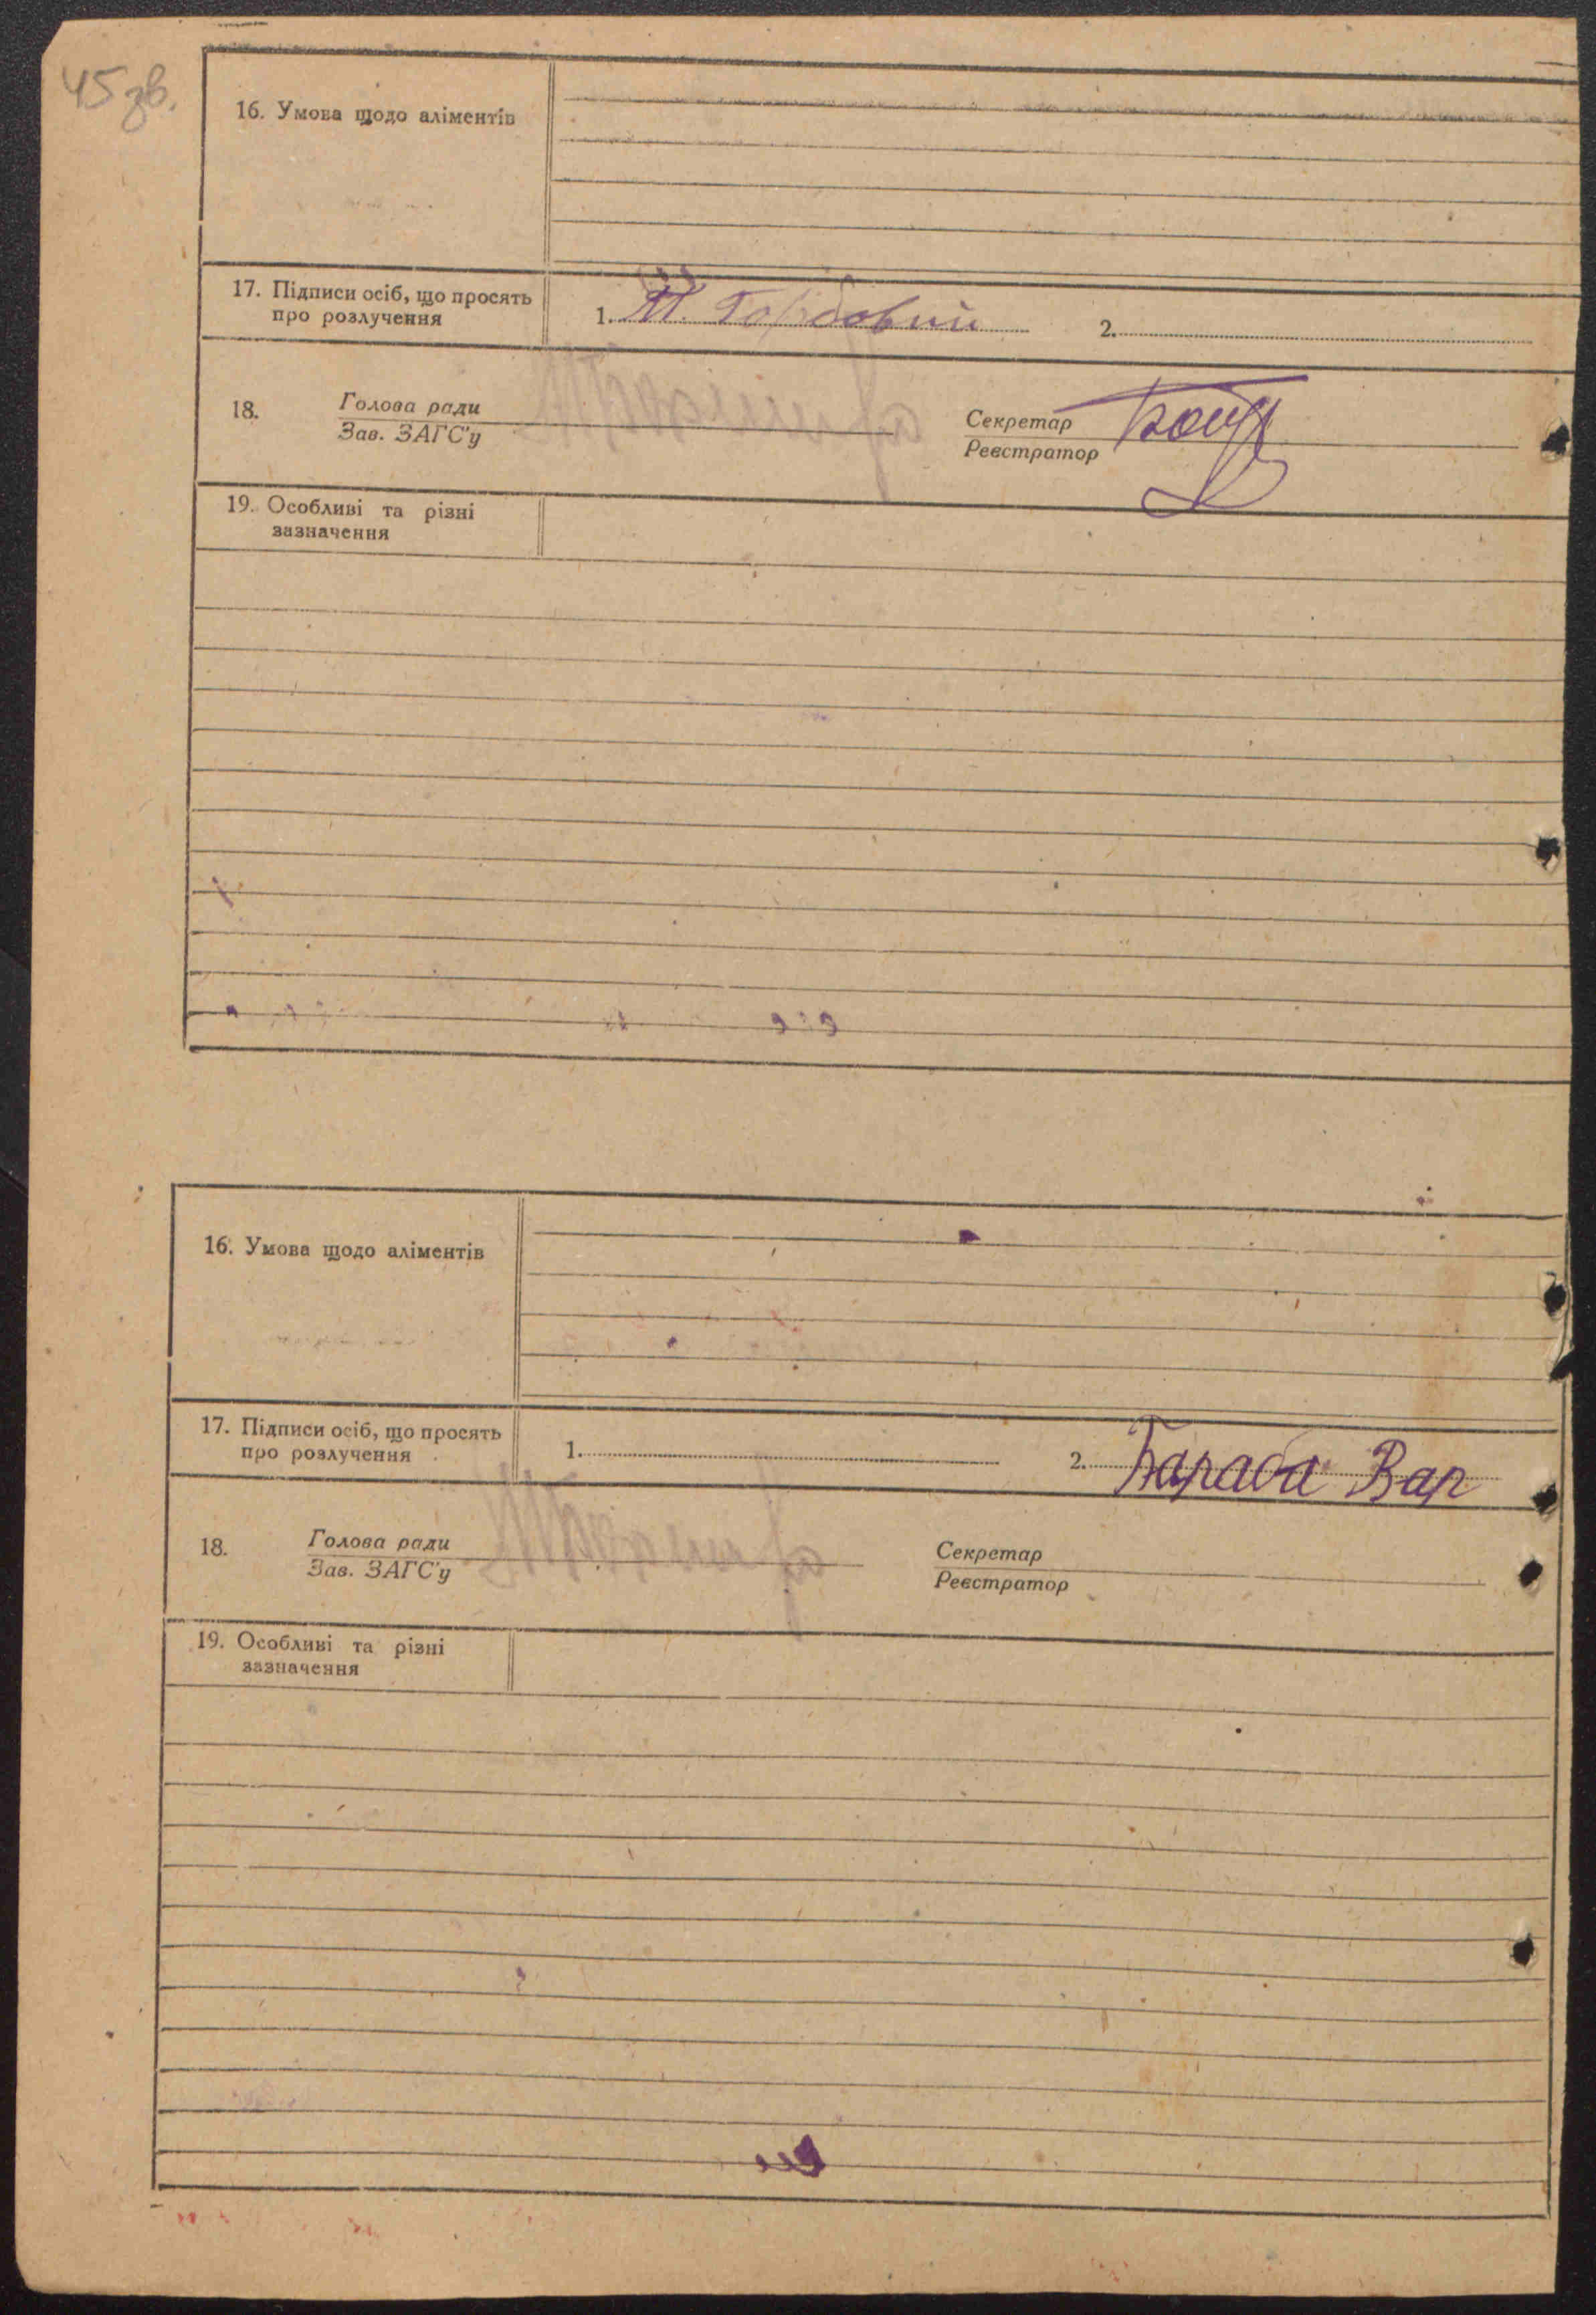 45 зв.
16. Умова щодо аліментів
17. Підписи осіб, що просять
про розлучення
1.
2.
18.
Голова ради
Зав. ЗАГС'у
Секретар
Реєстратор
19. Особливі та різні
зазначення
16. Умова щодо аліментів
17. Підписи осіб, що просять
про розлучення
1.
2. Бараба Вар
18.
Голова ради
Зав. ЗАГС'у
Секретар
Реєстратор
19. Особливі та різні
зазначення